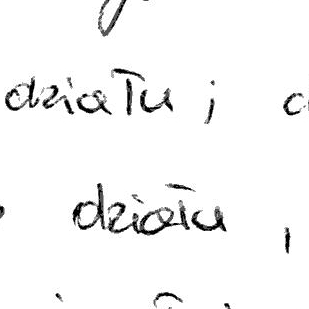 działu ;
działu ,